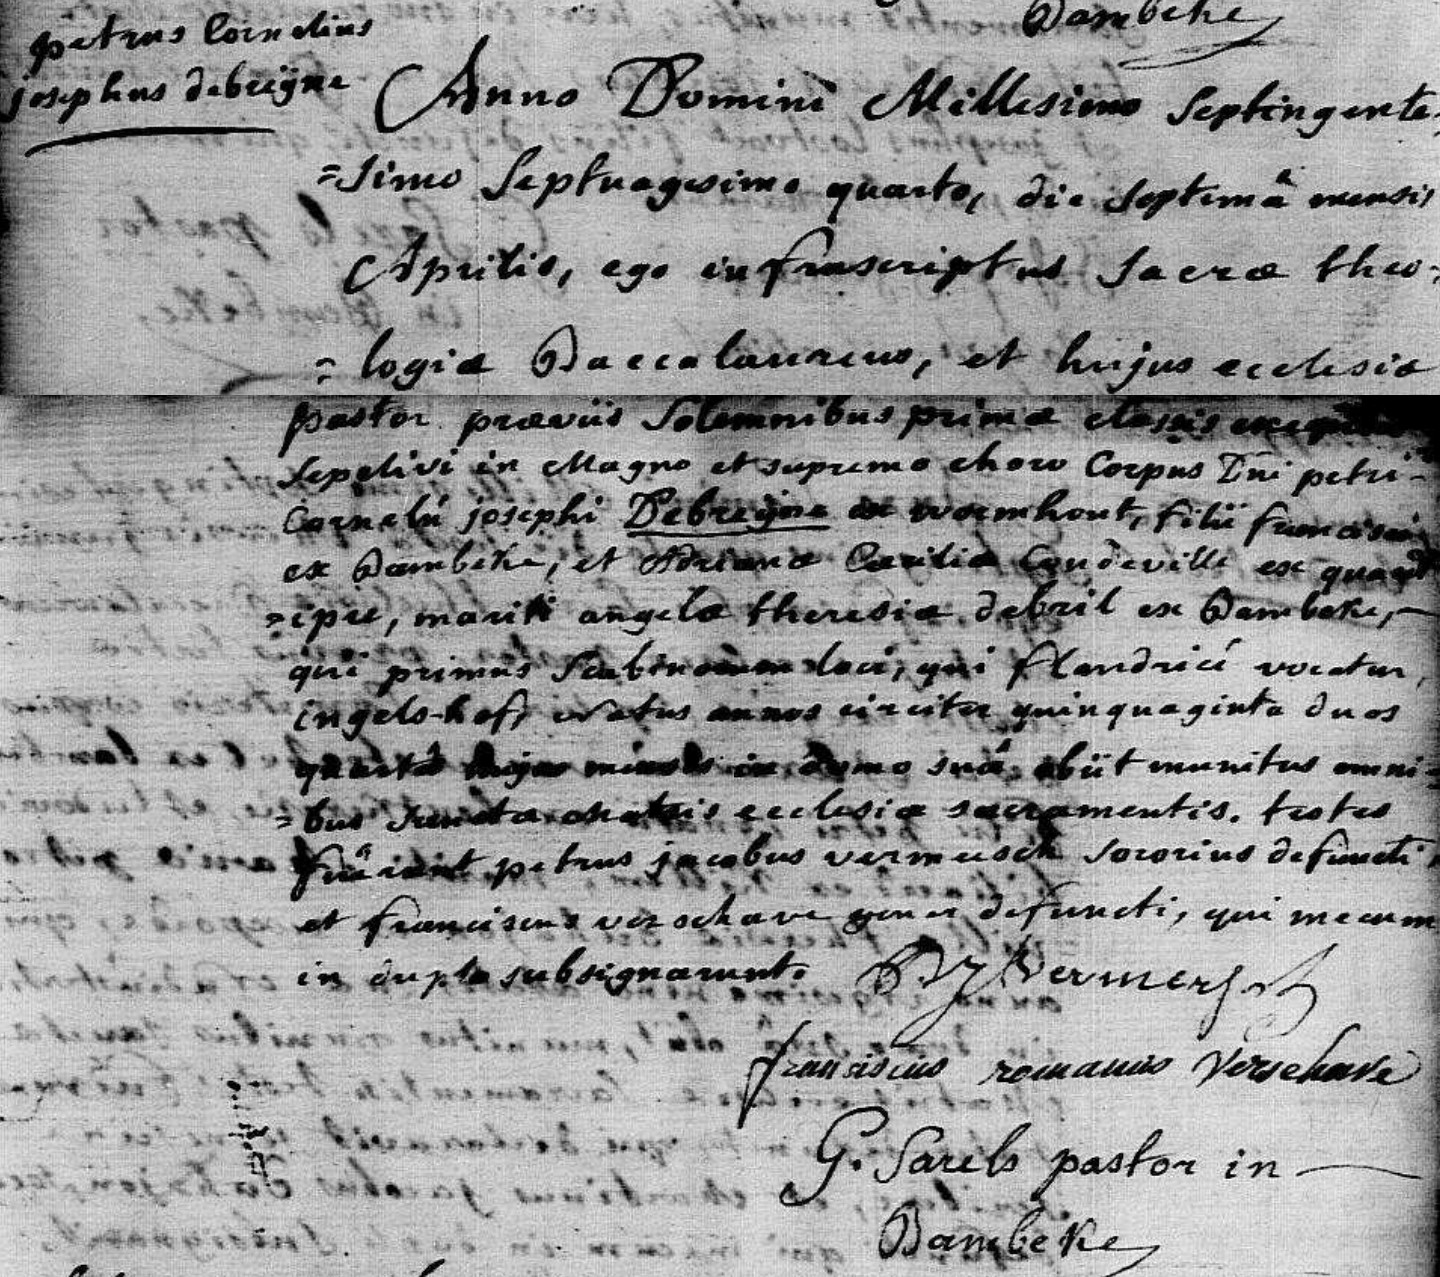 Bambeke
petrus Cornelius
josephus debreÿne
Anno Domini Millesimo Septingente=
=simo Septuagesimo quarto, die Septimâ mensis
Aprilis, ego infrascriptus Sacræ theo=
=logiæ Baccalaureus, et hujus ecclesiæ
pastor præviis Solemnibus primæ classis exequiis
Sepelivi in Magno et supremo choro Corpus Dni petri
Cornelii josephi Debreÿne ex wormhout, filii francisci
ex Bambeke, et Adrianæ Cæciliæ Coudeville ex quaed
=ipre, mariti angelæ theresiæ debril ex Bambeke,
qui primus Scabinorum loci, qui flandricè vocatur
ingels-hof, natus annos circiter quinquaginta duos
quartâ hujus mensis in domo suâ obiit munitus omni=
=bus sanctæ matris ecclesiæ sacramentis. testes
fuêrunt petrus jacobus vermeisch sororius defuncti,
et franciscus verschave gener defuncti, qui mecum
in duplo subsignarunt.
P J Vermersch
franciscus romanus Verschave
G. Sarels pastor in
Bambeke